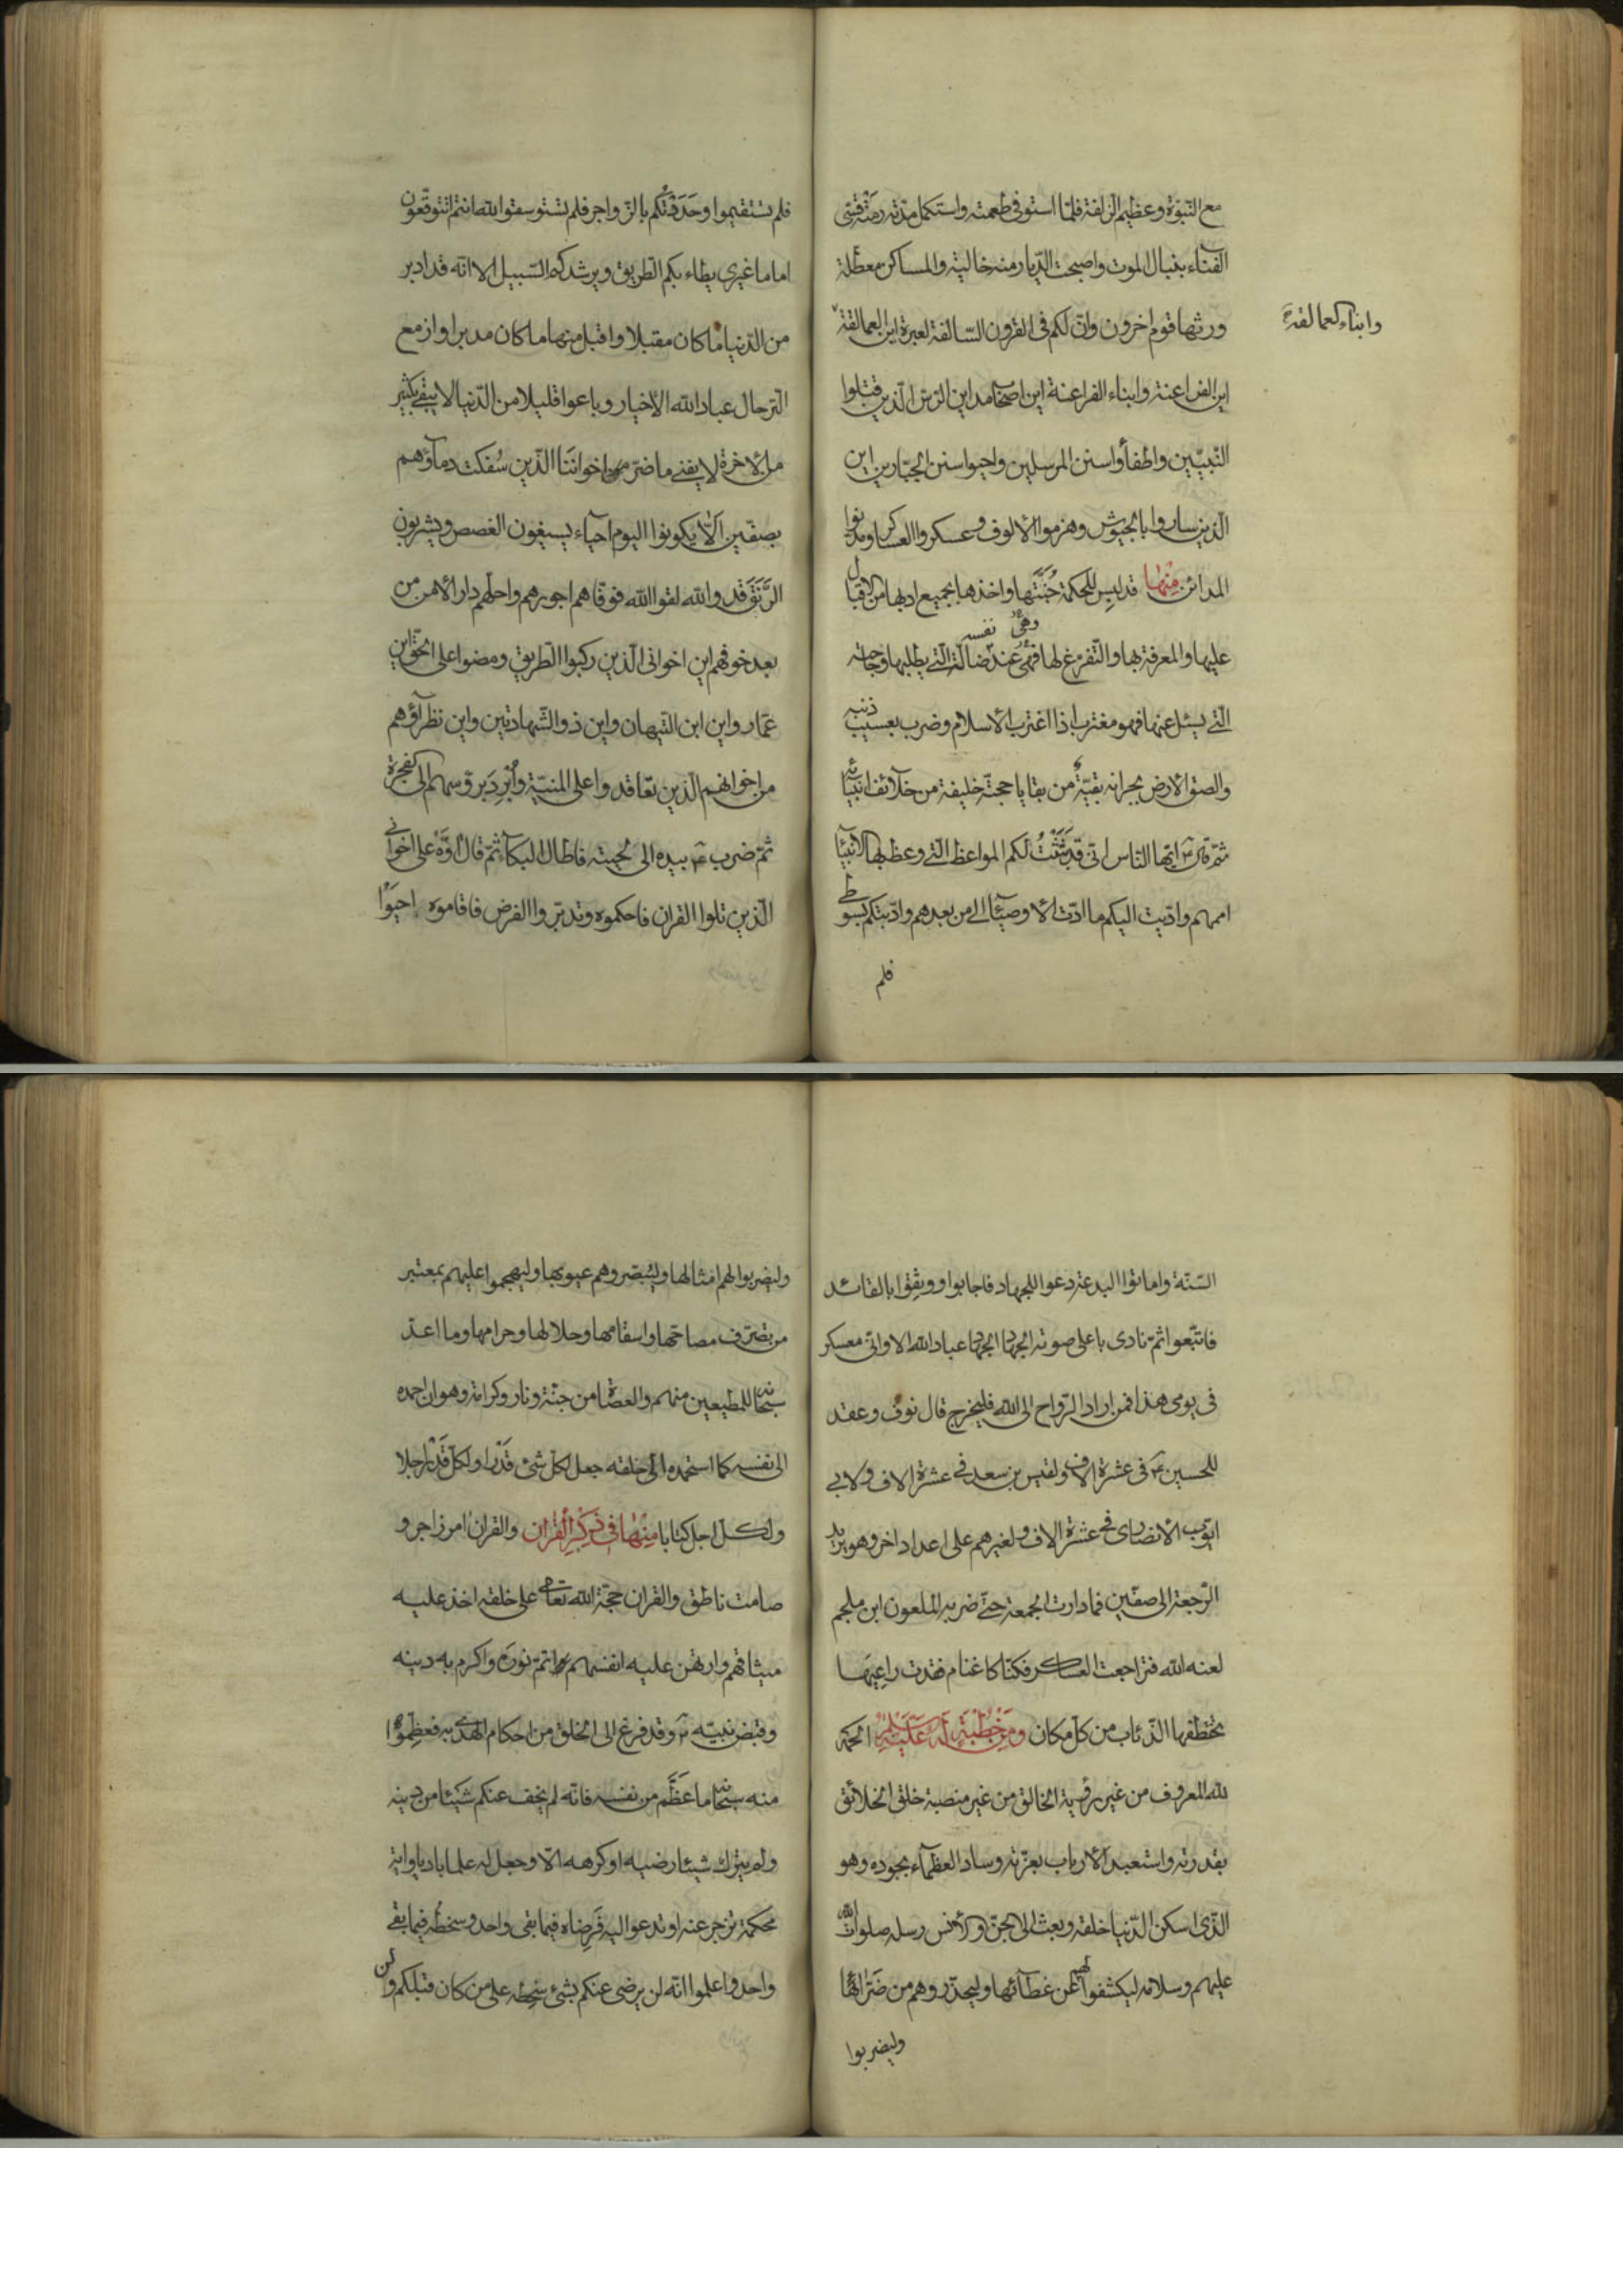 مع النبوة وعظيم الزلفة فلما استوفى طعمته واستكمل مدته رمته قسى
الفناء بنبال الموت واصبحت الديار منه خالية والمساكن معطلة
ورثها قوم اخرون وان لكم فى القرون السالفة لعبرة اين العمالقة
وابناء العمالقة
اين الفراعنة وابناء الفراعنة اين اصحاب مداين الرس الذين قتلوا
النبيين واطفأوا سنن المرسلين واحيوا سنن الجبارين اين
الذين ساروا بالجيوش وهزموا الالوف وعسكروا العساكر ومدنوا
المدائن مِنْهٰا قد لبس للحكمة جُنَّتَها واخذها بجميع ادبها من الاقبال
عليها والمعرفة بها والتفرغ لها فهى عند نفسه ضالته التى يطلبها وحاجته
وهى
التى يسئل عنها فهو مغترب اذا اغترب الاسلام وضرب بعسيب ذنبه
والصق الارض بجرانه بقيةٌ من بقايا حجته خليفة من خلائف انبيائه
ثم قال ع ايها الناس انى قد بَثَثْتُ لكم المواعظ التى وعظ بها الانبياء
اممهم واديت اليكم ما ادت الاوصياء الى من بعدهم وادبتكم بسوطى
فلم
فلم تستقيموا وحَدَوْتُكم بالزواجر فلم تستوسقوا لله انتم اتتوقعون
اماما غيرى يطاء بكم الطريق ويرشدكم السبيل الا انه قد ادبر
من الدنيا ما كان مقبلا واقبل منها ما كان مدبرا وازمع
الترحال عباد الله الاخيار وباعوا قليلا من الدنيا لا يبقى بكثير
من الاخرة لا يفنى ما ضر اخواننا الذين سُفكت دمآؤهم
بصفين الّا يكونوا اليوم احياء يسيغون الغصص ويشربون
الرَّنَقَ قد والله لقوا الله فوفاهم اجورهم واحلهم دار الامن من
بعد خوفهم اين اخوانى الذين ركبوا الطريق ومضوا على الحق اين
عمار واين ابن التيهان واين ذو الشهادتين واين نظرآؤهم
من اخوانهم الذين تعاقدوا على المنية وأُبْرِدَ برؤسهم الى الفجرة
ثم ضرب ع بيده الى لحيته فاطال البكاء ثم قال اوّه على اخوانى
الذين تلوا القران فاحكموه وتدبروا الفرض فاقاموه احيَوْا
السنة واماتوا البدعة دعوا للجهاد فاجابوا ووثِقوا بالقائد
فاتبعوا ثم نادى باعلى صوته الجهاد الجهاد عباد الله الا وانى معسكر
فى يومى هذا فمن اراد الرواح الى الله فليخرج قال نوف وعقد
للحسين ع فى عشرة الاف ولقيس بن سعد فى عشرة الاف ولابى
ايوب الانصارى فى عشرة الاف ولغيرهم على اعداد اخر وهو يريد
الرجعة الى صفين فما دارت الجمعة حتى ضربه الملعون ابن ملجم
لعنه الله فتراجعت العساكر فكنا كاغنام فقدت راعيها
تختطفها الذئاب من كل مكان وَمِنْ خُطْبَةٍ لَهُ عَلَيْهِ الحمد
لله المعروف من غير رؤية الخالق من غير منصبة خلق الخلائق
بقدرته واستعبد الارباب بعزته وساد العظمآء بجوده وهو
الذى اسكن الدنيا خلقه وبعث الى الجن والانس رسله صلوات الله
عليهم وسلامه ليكشفوا لهم عن غطآئها وليحذروهم من ضَرّآئها
وليضربوا
وليضربوا لهم امثالها وليُبَصّروهم عيوبها وليهجموا عليهم بمعتبر
من تصرف مصاحها واسقامها وحلالها وحرامها وما اعد
سبحانه للمطيعين منهم والعصاة من جنة ونار وكرامة وهوان احمده
الى نفسه كما استحمد الى خلقه جعل لكل شئ قَدْرًا ولكل قَدْر اجلا
ولكل اجل كتابا مِنْهٰا فى ذِكْرِ الْقُرْاٰنِ والقران امر زاجر و
صامت ناطق والقران حجة الله تعالى على خلقه اخذ عليه
ميثاقهم وارتهن عليه انفسهم اتمّ نورَه واكرم به دينه
وقبض نبيه ص وقد فرغ الى الخلق من احكام الهدى به فعظِّموا
منه سبحانه ما عَظَّم من نفسه فانه لم يخف عنكم شيئا من دينه
ولم يترك شيئا رضيه او كرهه الا وجعل له علما باديا واية
محكمة تزجر عنه او تدعوا اليه فَرِضاه فيما بقى واحد وسخطُه فيما بقى
واحد واعلموا انه لن يرضى عنكم بشئ سخطه على من كان قبلكم ولن